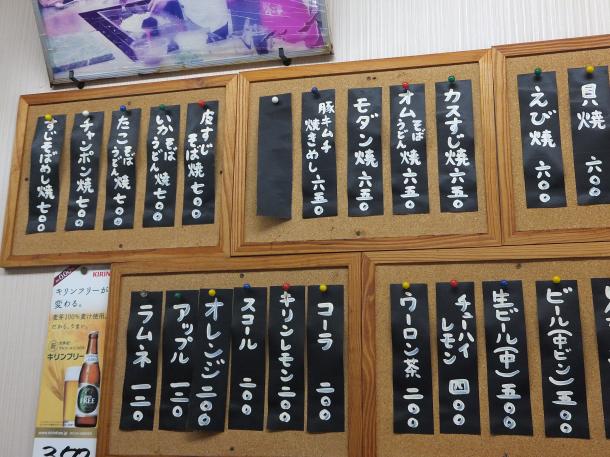 貝焼
えび焼 六〇〇
カスすじ焼 六五〇
オムそばうどん焼 六五〇
モダン焼 六五〇
豚キムチ焼きめし 六五〇
皮すじそば焼 七〇〇
いかそばうどん焼 七〇〇
たこそばうどん焼 七〇〇
チャンポン焼 七〇〇
すじそばめし焼 七〇〇
ビール(中ビン) 五〇〇
生ビール(中) 五〇〇
チューハイレモン 四〇〇
ウーロン茶 二〇〇
コーラ 二〇〇
キリンレモン 二〇〇
スコール 二〇〇
オレンジ 二〇〇
アップル 一二〇
ラムネ 一二〇
KIRIN
キリンフリーが
変わる。
麦芽100%麦汁使用。
キリンフリー
FREE
350